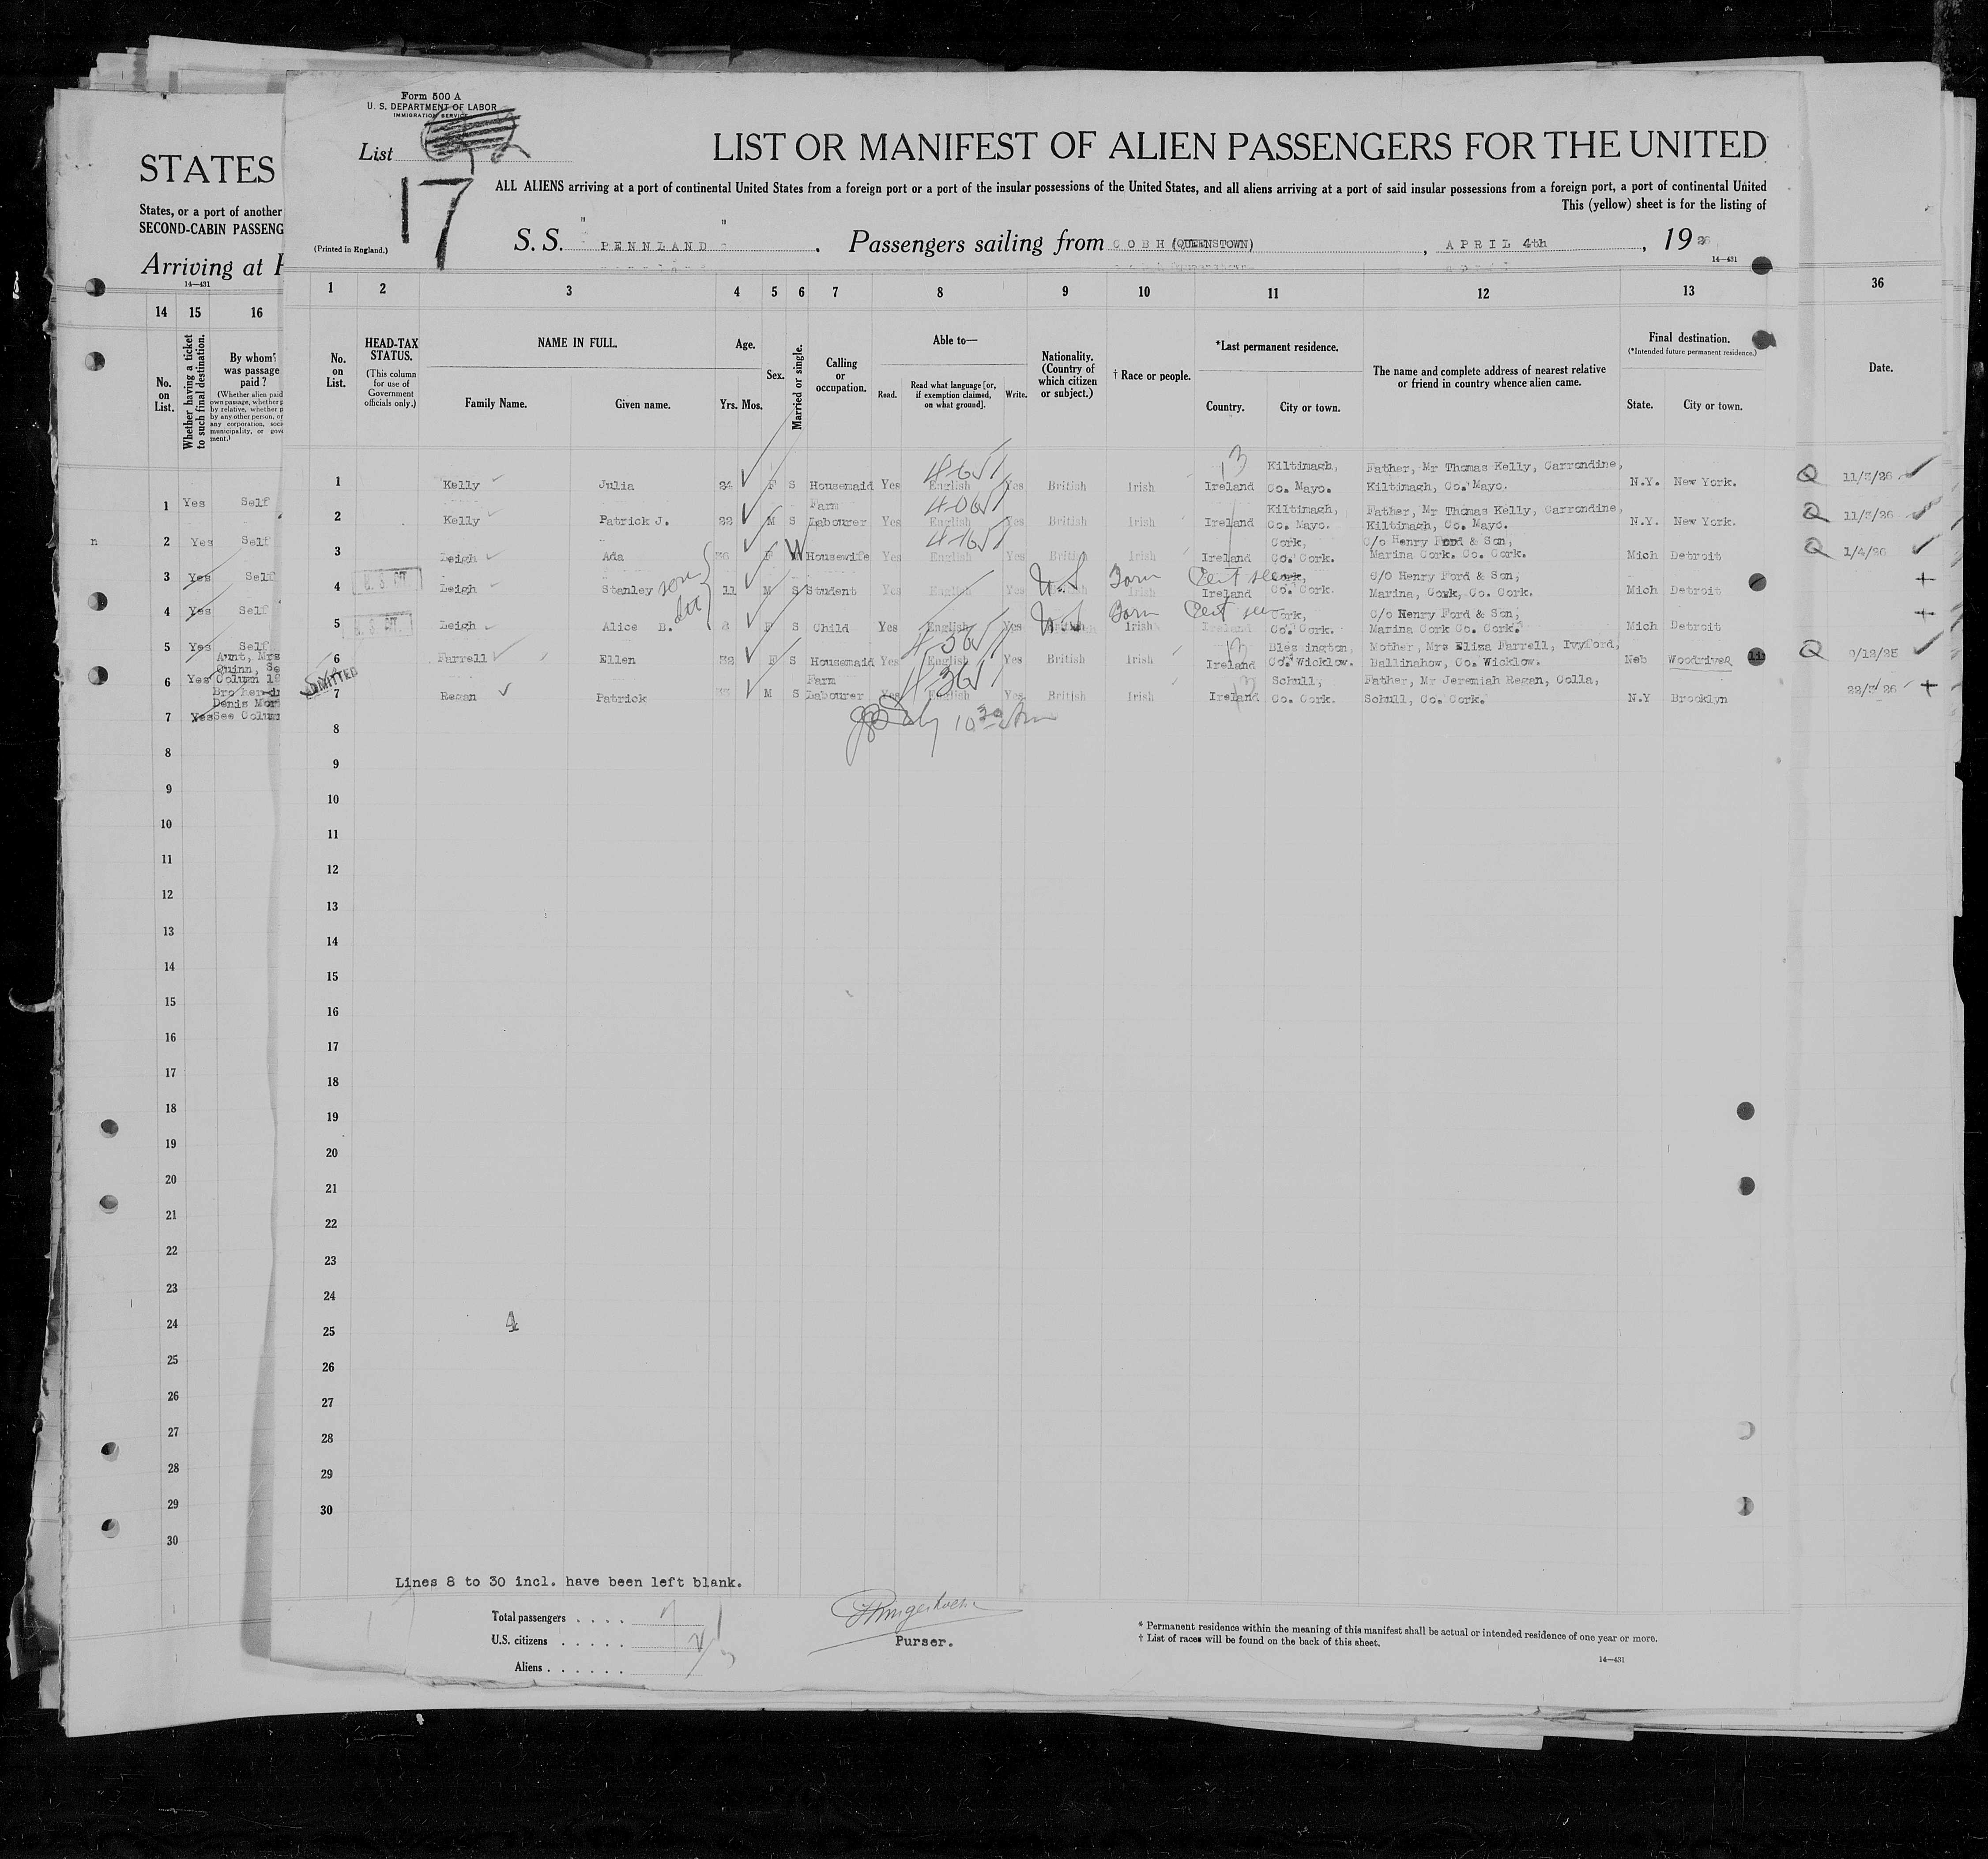 Form 500 A
U. S. DEPARTMENT OF LABOR
IMMIGRATION SERVICE
List
17
(Printed in England.)
LIST OR MANIFEST OF ALIEN PASSENGERS FOR THE UNITED
ALL ALIENS arriving at a port of continental United States from a foreign port or a port of the insular possessions of the United States, and all aliens arriving at a port of said insular possessions from a foreign port, a port of continental United
This (yellow) sheet is for the listing of
S. S. " PENNLAND " , Passengers sailing from COBH (QUEENSTOWN) , APRIL 4th , 19 26
14—431
STATES
States, or a port of another
SECOND-CABIN PASSENG
Arriving at
14—431
14 15 16
No. on List.
Whether having a ticket to such final destination.
By whom was passage paid ?
(Whether alien paid
own passage, whether
by relative, whether
by any other person, or
any corporation,
municipality, or
ment.)
1 Yes Self
2 Yes Self
3 Yes Self
4 Yes Self
5 Yes Self
Aunt, Mrs
Quinn,
6 Yes Column
Denis
7 Yes See Colum
8
9
10
11
12
13
14
15
16
17
18
19
20
21
22
23
24
25
26
27
28
29
30
1 2 3 4 5 6 7 8 9 10 11 12 13
No. on List.
HEAD-TAX STATUS.
(This column for use of Government officials only.)
NAME IN FULL.
Family Name. Given name.
Age.
Yrs. Mos.
Sex.
Married or single.
Calling or occupation.
Able to—
Read. Read what language [or, if exemption claimed, on what ground]. Write.
Nationality. (Country of which citizen or subject.)
† Race or people.
*Last permanent residence.
Country. City or town.
The name and complete address of nearest relative or friend in country whence alien came.
Final destination.
(*Intended future permanent residence.)
State. City or town.
36
Date.
Kiltimagh, Father, Mr Thomas Kelly, Carrondine,
1 Kelly Julia 24 F S Housemaid Yes English Yes British Irish Ireland Co. Mayo. Kiltimagh, Co. Mayo. N.Y. New York. Q 11/3/26
Farm Kiltimagh, Father, Mr Thomas Kelly, Carrondine,
2 Kelly Patrick J. 22 M S Labourer Yes English Yes British Irish Ireland Co. Mayo. Kiltimagh, Co. Mayo. N.Y. New York. Q 11/3/26
Cork, C/o Henry Ford & Son,
3 Leigh Ada 36 F W Housewife Yes English Yes British Irish Ireland Co. Cork. Marina Cork. Co. Cork. Mich Detroit Q 1/4/26
Cork, C/o Henry Ford & Son,
4 U. S. CIT. Leigh Stanley son 11 M S Student Yes English Yes U.S. Born Ireland Co. Cork. Marina, Cork, Co. Cork. Mich Detroit
Cork, C/o Henry Ford & Son,
5 U. S. CIT. Leigh Alice B. 8 F S Child Yes English Yes U.S. Born Irish Ireland Co. Cork. Marina Cork Co. Cork. Mich Detroit
Blessington, Mother, Mrs Eliza Farrell, Ivyford,
6 Farrell Ellen 32 F S Housemaid Yes English Yes British Irish Ireland Co. Wicklow. Ballinahow, Co. Wicklow. Neb Woodriver Q 9/12/25
ADMITTED
Farm Schull, Father, Mr Jeremiah Regan, Colla,
7 Regan Patrick M S Labourer Yes English Yes British Irish Ireland Co. Cork. Schull, Co. Cork. N.Y Brooklyn 22/3/26
8
9
10
11
12
13
14
15
16
17
18
19
20
21
22
23
24
25
26
27
28
29
30
Lines 8 to 30 incl. have been left blank.
Total passengers . . . . 7
U.S. citizens . . . . . 2
Aliens . . . . . . 5
Purser.
* Permanent residence within the meaning of this manifest shall be actual or intended residence of one year or more.
† List of races will be found on the back of this sheet.
14—431